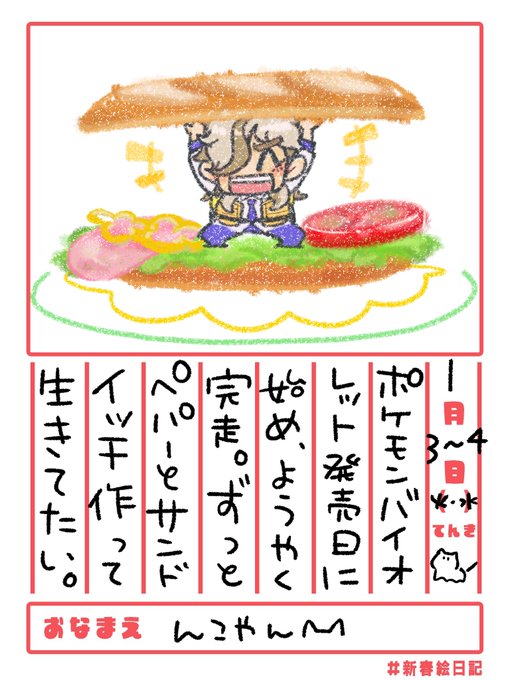 1月3~4日(*・*)てんき
ポケモンバイオ
レット発売日に
始め、ようやく
完走。ずっと
ペパーとサンド
イッチ作って
生きてたい。
おなまえ んこやんM
#新春絵日記